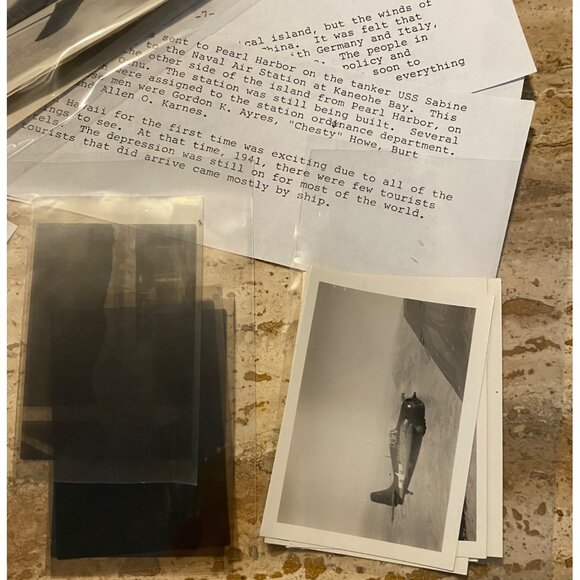 -7-
cal island, but the winds of
china. It was felt that
with Germany and Italy,
The people in
policy and
soon to
everything
s sent to Pearl Harbor on the tanker USS Sabine
to the Naval Air Station at Kaneohe Bay. This
the other side of the island from Pearl Harbor, on
Oahu. The station was still being built. Several
men were assigned to the station ordinance department.
men were Gordon K. Ayres, "Chesty" Howe, Burt
and Allen O. Karnes.
Hawaii for the first time was exciting due to all of the
ings to see. At that time, 1941, there were few tourists
The depression was still on for most of the world.
tourists that did arrive came mostly by ship.